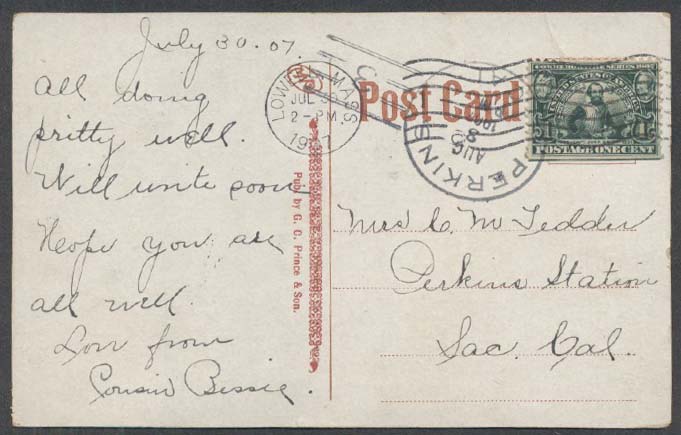 July 30.07.
All doing
pritty well.
Will write soon
Hope you are
all well.
Love from
Cousin Bessie.
Pub. by G. C. Prince & Son.
Post Card
LOWELL MASS.
JUL 31
2-PM
1907
PERKINS
AUG
COMMEMORATIVE SERIES 1907
UNITED STATES OF AMERICA
1 1
POSTAGE ONE CENT
Mrs C. M Tedder
Perkins Station
Sac. Cal.